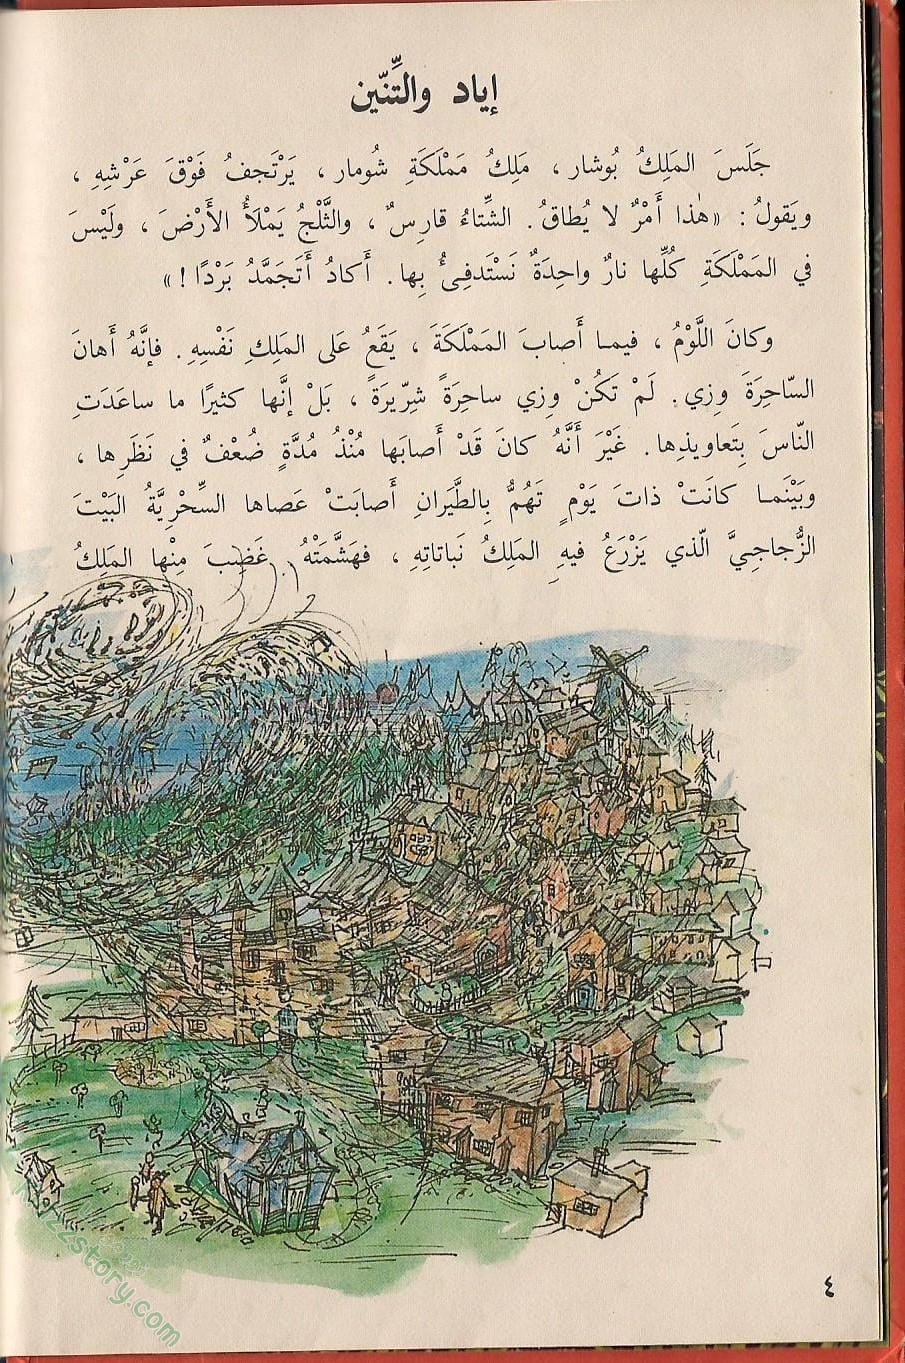 إياد والتِّنّين
جَلَسَ المَلِكُ بُوشار ، مَلِكُ مَمْلَكَةِ شُومار ، يَرْتَجِفُ فَوْقَ عَرْشِهِ ،
ويَقولُ : «هٰذا أَمْرٌ لا يُطاقُ . الشِّتاءُ قارِسٌ ، والثَّلْجُ يَمْلَأُ الأَرْضَ ، ولَيْسَ
في المَمْلَكَةِ كُلِّها نارٌ واحِدَةٌ نَسْتَدفِئُ بِها . أَكادُ أَتَجَمَّدُ بَرْدًا !»
وكانَ اللَّوْمُ ، فيما أَصابَ المَمْلَكَةَ ، يَقَعُ عَلى المَلِكِ نَفْسِهِ . فإنَّهُ أَهانَ
السّاحِرَةَ وِزي . لَمْ تَكُنْ وِزي ساحِرَةً شِرّيرَةً ، بَلْ إنَّها كَثيرًا ما ساعَدَتِ
النّاسَ بِتَعاويذِها . غَيْرَ أَنَّهُ كانَ قَدْ أَصابَها مُنْذُ مُدَّةٍ ضُعْفٌ في نَظَرِها ،
وبَيْنَما كانَتْ ذاتَ يَوْمٍ تَهُمُّ بِالطَّيَرانِ أَصابَتْ عَصاها السِّحْرِيَّةُ البَيْتَ
الزُّجاجِيَّ الَّذي يَزْرَعُ فيهِ المَلِكُ نَباتاتِهِ ، فهَشَّمَتْهُ . غَضِبَ مِنْها المَلِكُ
٤